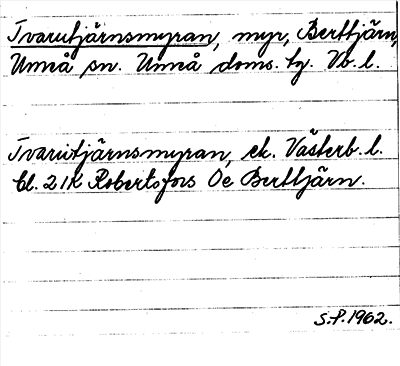 Tvarutjärnsmyran, myr, Berttjärn,
Umeå sn. Umeå doms. tg. Vb. l.
Tvarutjärnsmyran, ek. Västerb. l.
bl. 21K Robertsfors Oe Berttjärn.
S.P. 1962.